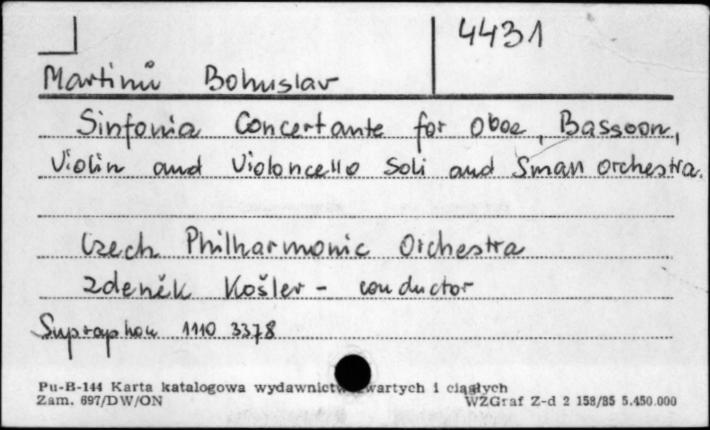 4431
Martinů Bohuslav
Sinfonia Concertante for Oboe, Bassoon,
Violin and Violoncello Soli and Small Orchestra.
Czech Philharmonic Orchestra
Zdeněk Košler - conductor
Supraphon 1110 3378
Pu-B-144 Karta katalogowa wydawnictw zwartych i ciągłych
Zam. 697/DW/ON WZGraf Z-d 2 158/85 5.450.000